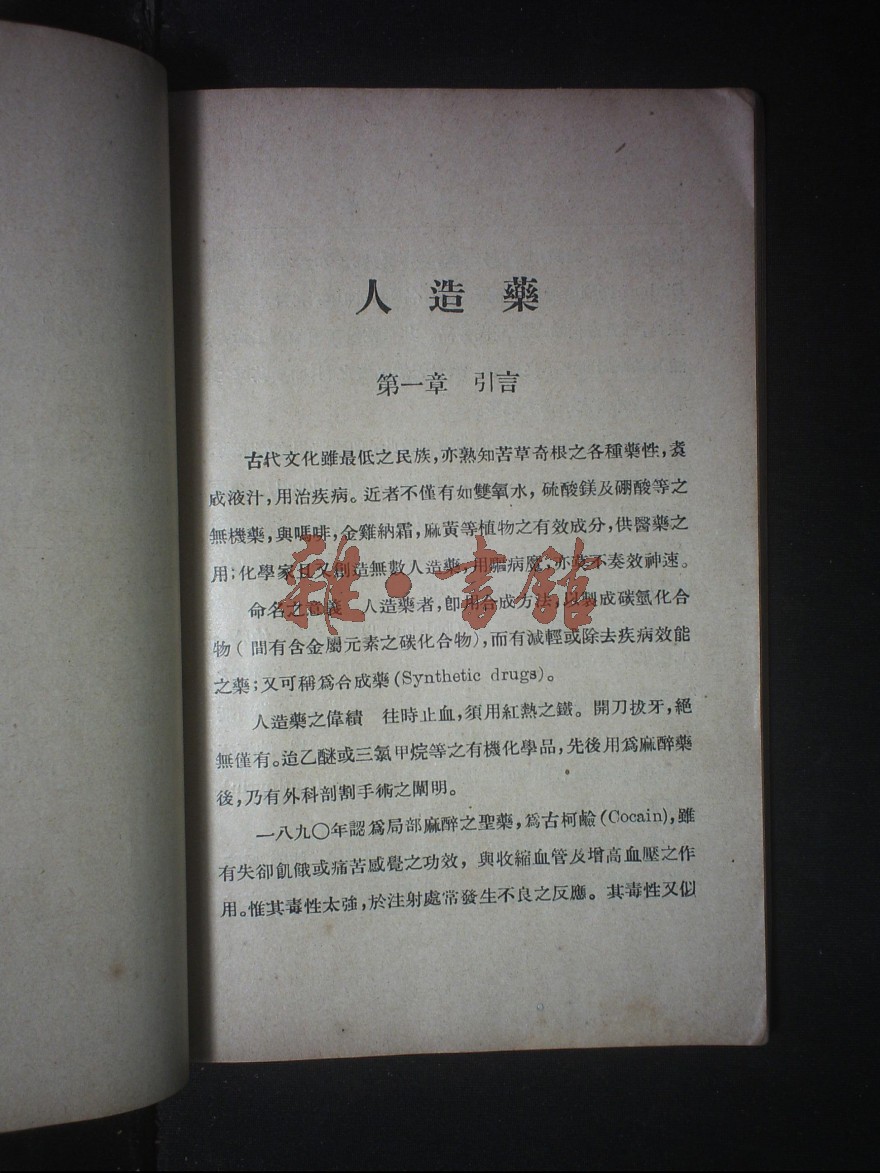 人造藥
第一章 引言
古代文化雖最低之民族，亦熟知苦草奇根之各種藥性，煑
成液汁，用治疾病。近者不僅有如雙氧水，硫酸鎂及硼酸等之
無機藥，與嗎啡，金雞納霜，麻黃等植物之有效成分，供醫藥之
用；化學家且又創造無數人造藥，用驅病魔，亦莫不奏效神速。
命名之意義 人造藥者，卽用合成方法，以製成碳氫化合
物（間有含金屬元素之碳化合物），而有減輕或除去疾病效能
之藥；又可稱爲合成藥（Synthetic drugs）。
人造藥之偉績 往時止血，須用紅熱之鐵。開刀拔牙，絕
無僅有。迨乙醚或三氯甲烷等之有機化學品，先後用爲麻醉藥
後，乃有外科剖割手術之闡明。
一八九〇年認爲局部麻醉之聖藥，爲古柯鹼（Cocain），雖
有失卻飢餓或痛苦感覺之功效，與收縮血管及增高血壓之作
用。惟其毒性太強，於注射處常發生不良之反應。其毒性又似
雜·書館